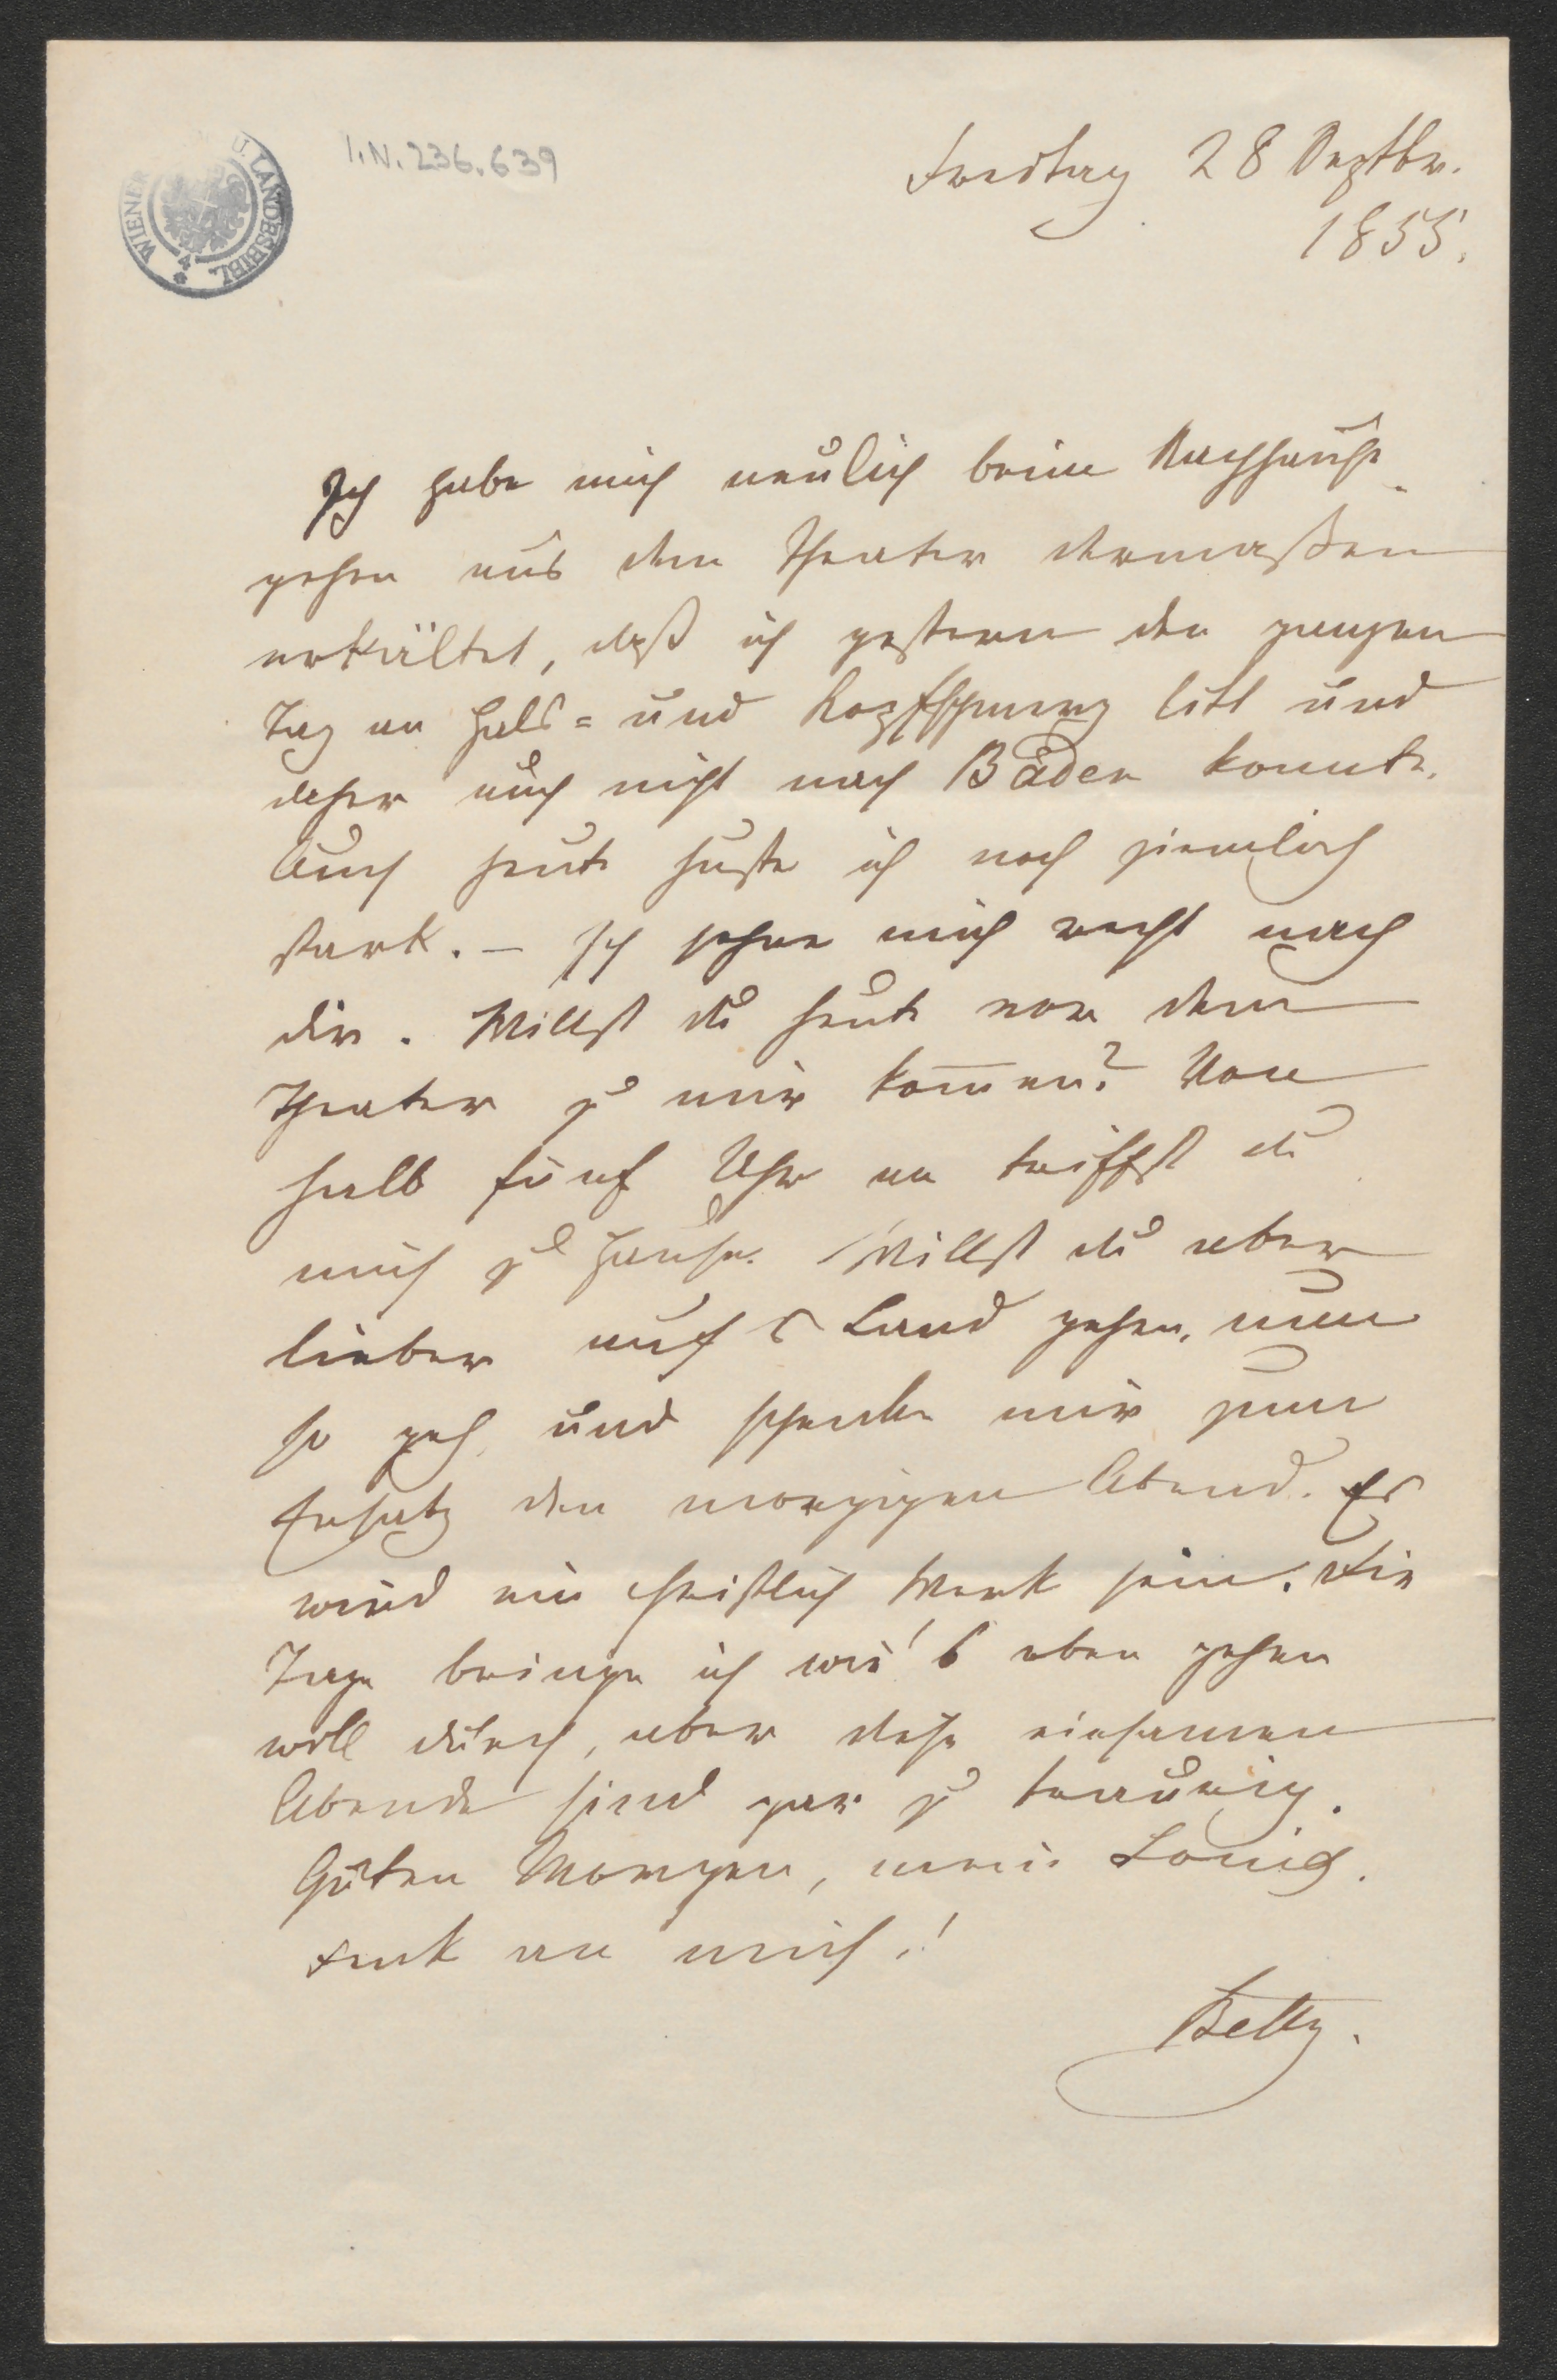 I.N. 236.639
WIENER U. LANDESBIBL.
Freitag 28 Septbr.
1855.
Ich habe mich neulich beim Nachhause-
gehen aus dem Theater dermaßen
erkältet, daß ich gestern den ganzen
Tag an Hals= und Kopfschmerz litt und
daher auch nicht nach Baden konnte.
Auch heute huste ich noch ziemlich
stark. – Ich sehne mich recht nach
dir. Willst du heute vor dem
Theater zu mir kom̅en? Von
halb fünf Uhr an triffst du
mich zu Hause. Willst du aber
lieber aufs Land gehen, nun
so geh, und schenke mir zum
Ersatz den morgigen Abend. Es
wird ein christlich Werk sein. Die
Tage bringe ich wie's eben gehen
will durch, aber diese einsamen
Abende sind gar zu traurig.
Guten Morgen, mein Louis.
Denk an mich!
Betty.